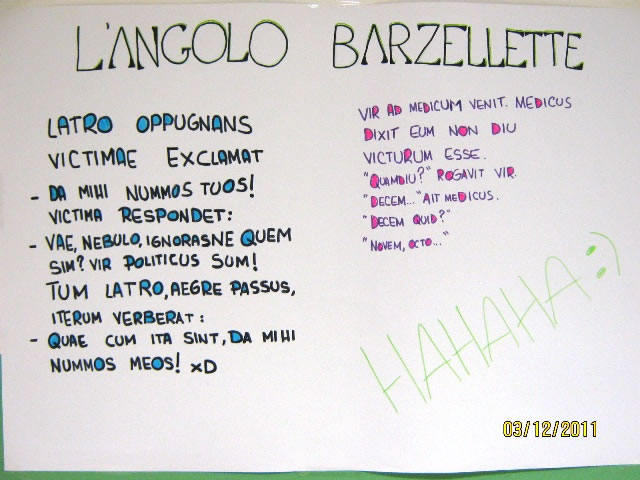 L'ANGOLO BARZELLETTE
LATRO OPPUGNANS
VICTIMAE EXCLAMAT
- DA MIHI NUMMOS TUOS!
VICTIMA RESPONDET:
- VAE, NEBULO, IGNORASNE QUEM
SIM? VIR POLITICUS SUM!
TUM LATRO, AEGRE PASSUS,
ITERUM VERBERAT:
- QUAE CUM ITA SINT, DA MIHI
NUMMOS MEOS! XD
VIR AD MEDICUM VENIT. MEDICUS
DIXIT EUM NON DIU
VICTURUM ESSE.
"QUAMDIU?" ROGAVIT VIR.
"DECEM..." AIT MEDICUS.
"DECEM QUID?"
"NOVEM, OCTO..."
HAHAHA :)
03/12/2011